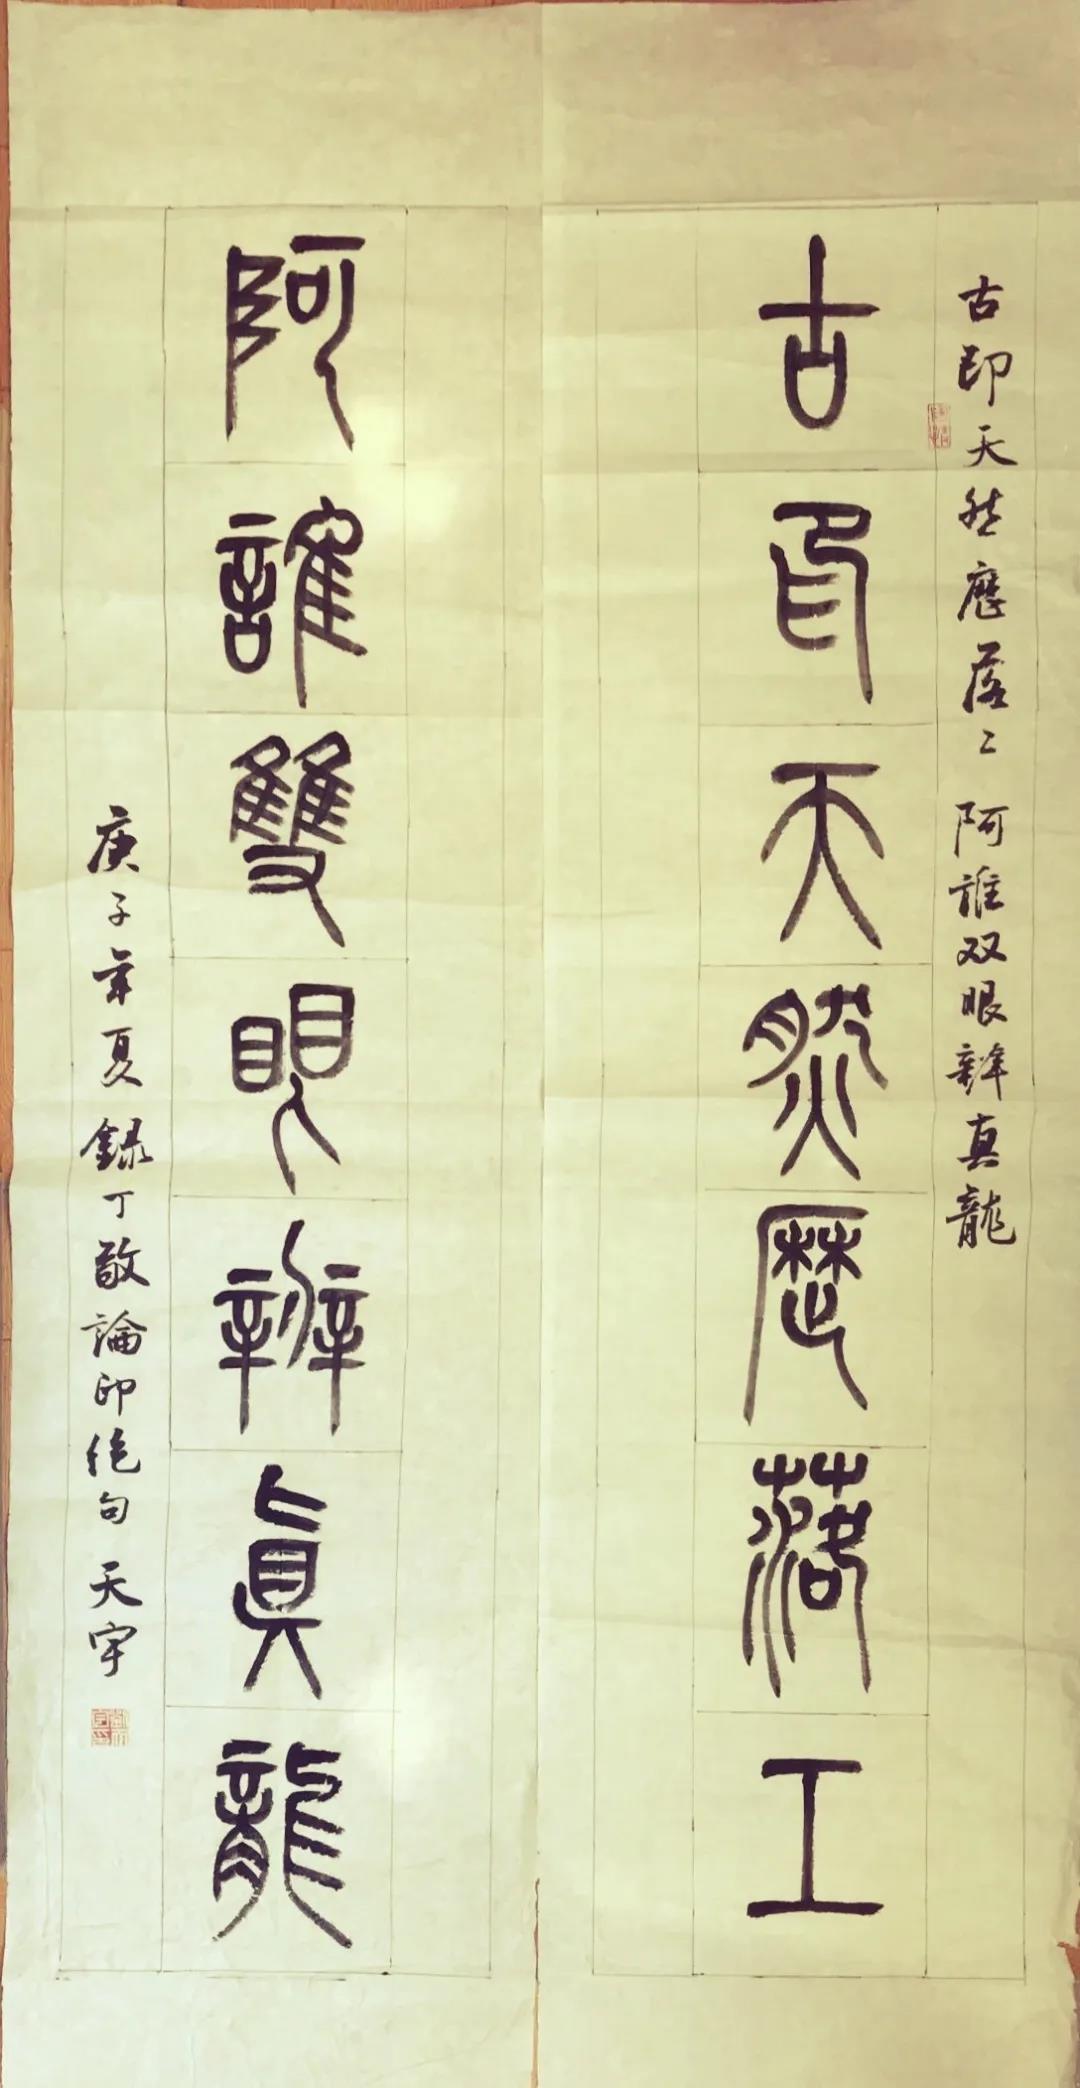 古印天然歷落工 阿誰双眼辨真龍
古印天然歷落工
阿誰雙眼辨眞龍
庚子年夏録丁敬論印絶句 天宇